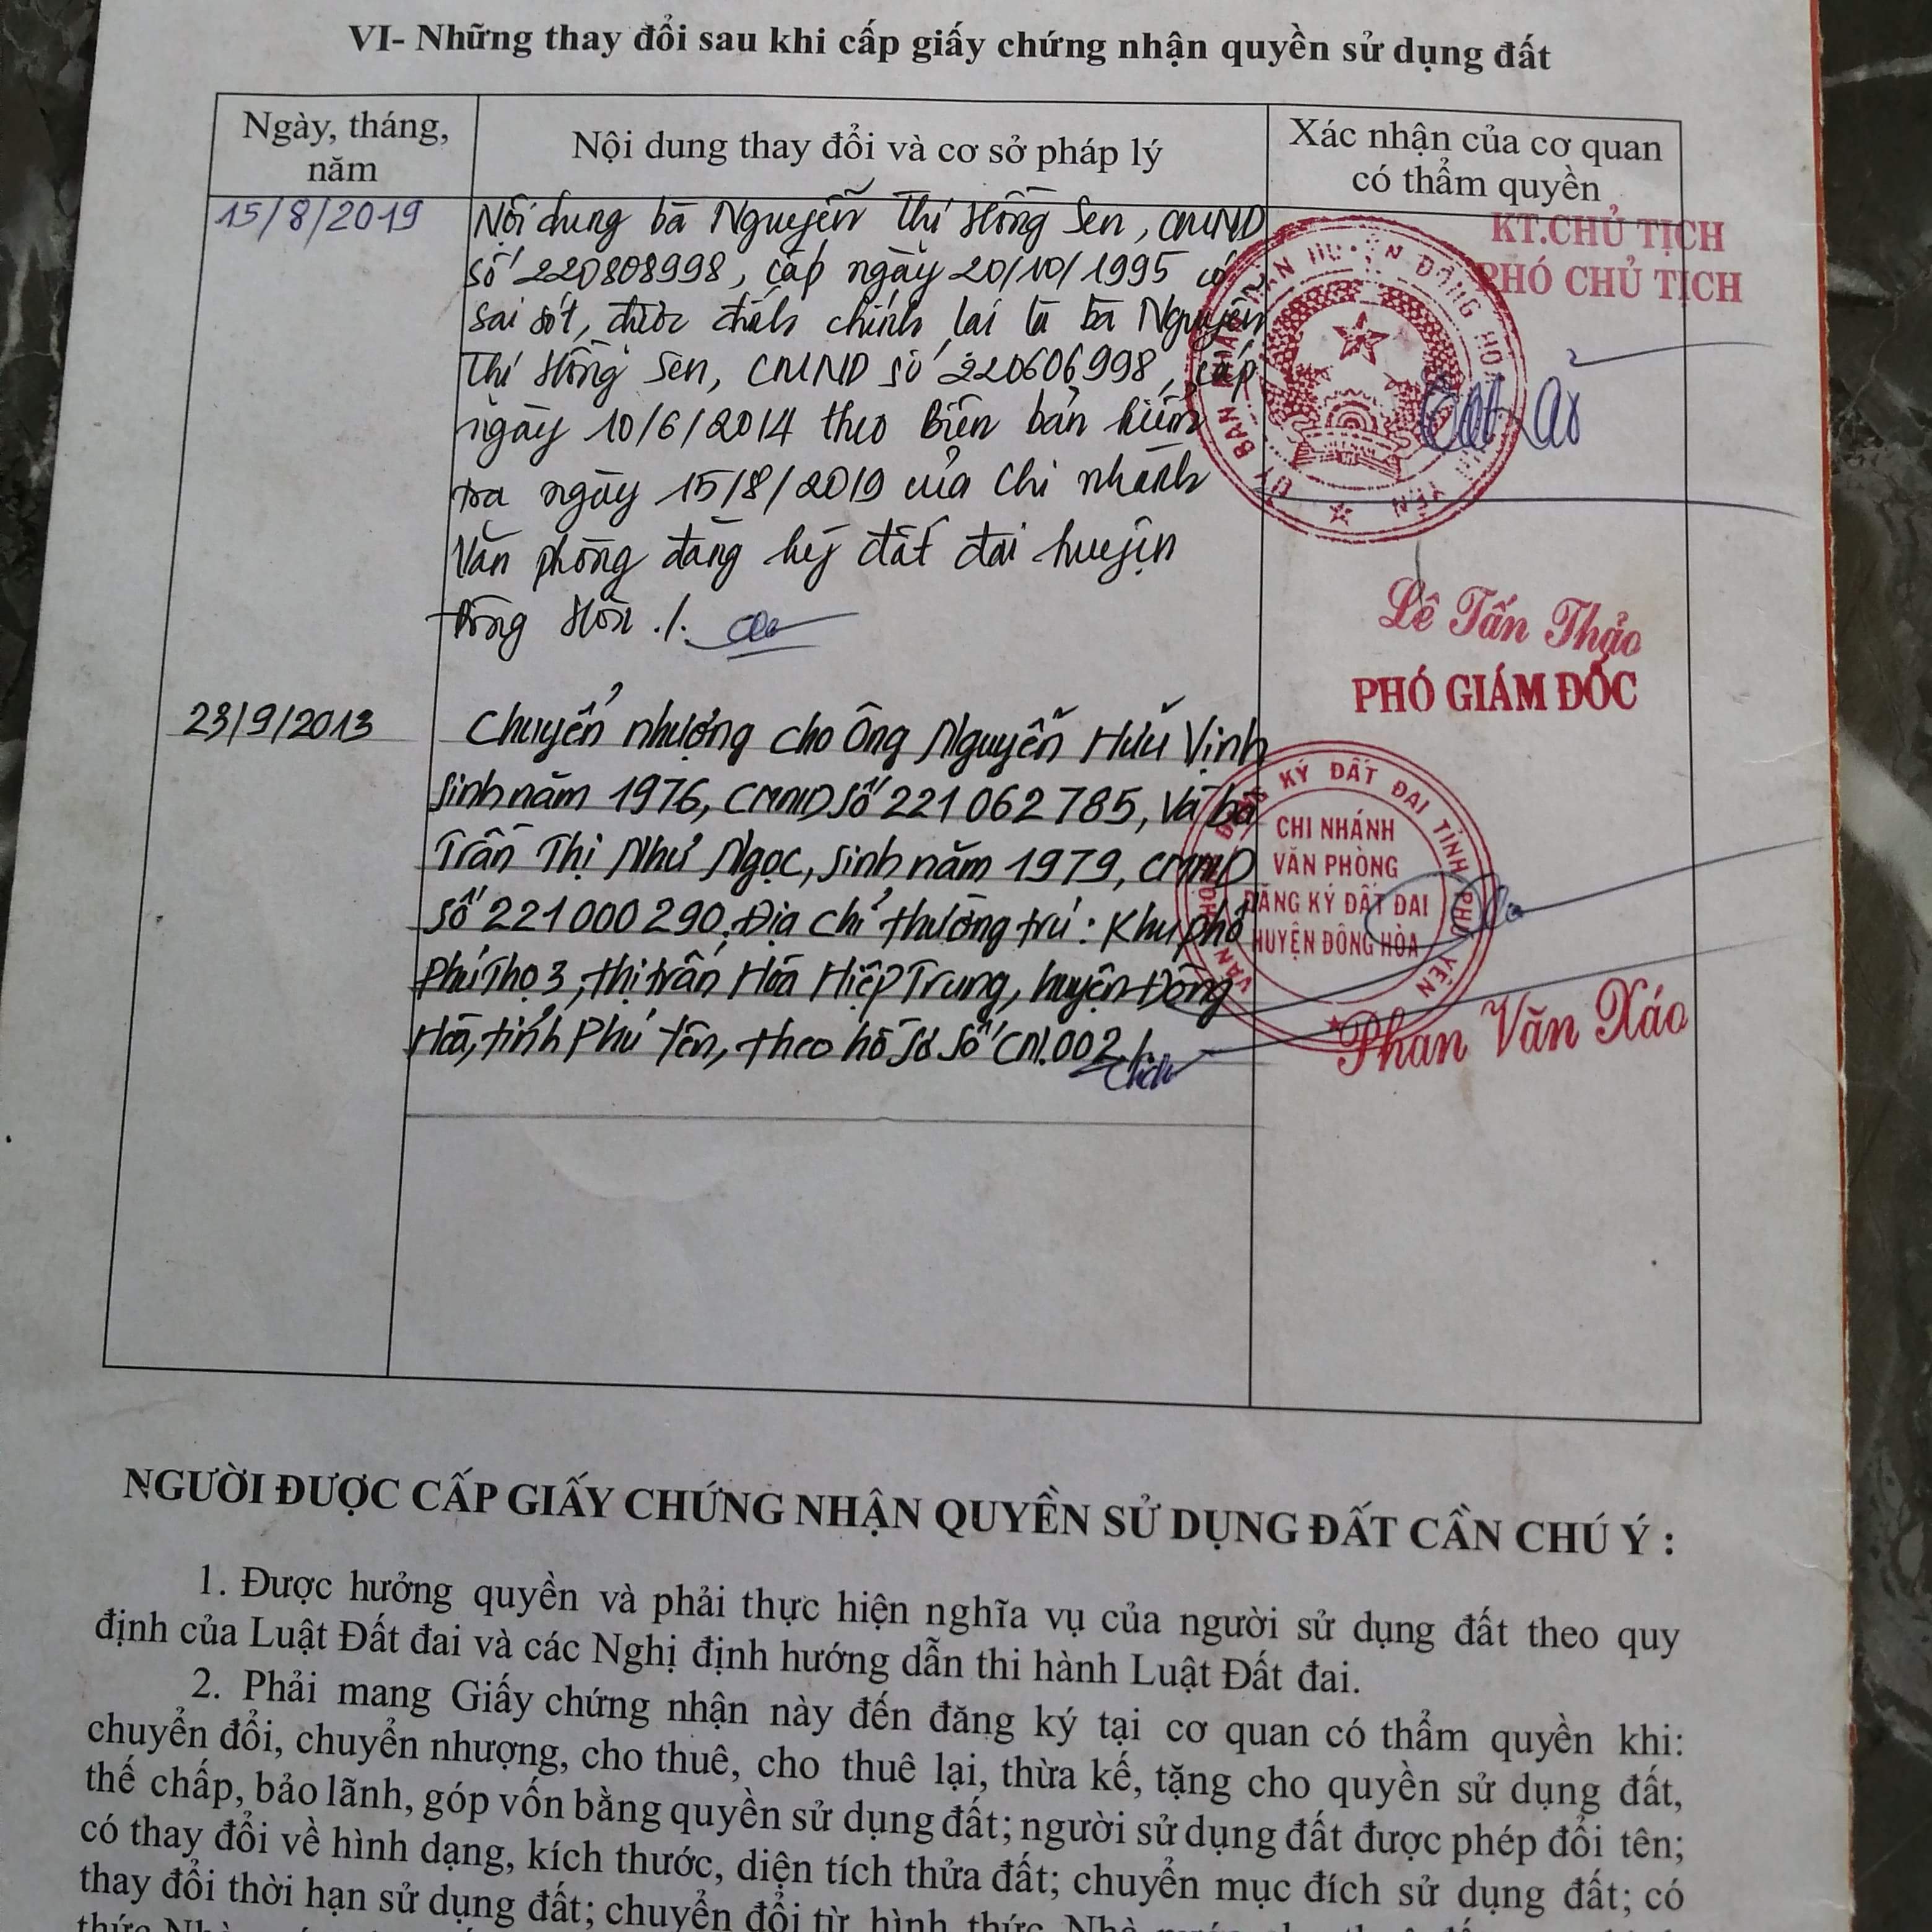 VI- Những thay đổi sau khi cấp giấy chứng nhận quyền sử dụng đất
Ngày, tháng,
năm
Nội dung thay đổi và cơ sở pháp lý
Xác nhận của cơ quan
có thẩm quyền
15/8/2019
Nội dung bà Nguyễn Thị Hồng Sen, CMND
số 220808998, cấp ngày 20/10/1995 có
sai sót, được đính chính lại là bà Nguyễn
Thị Hồng Sen, CMND số 220606998, cấp
ngày 10/6/2014 theo Biên bản kiểm
tra ngày 15/8/2019 của Chi nhánh
Văn phòng đăng ký đất đai huyện
Đông Hòa ./.
KT.CHỦ TỊCH
PHÓ CHỦ TỊCH
ỦY BAN NHÂN DÂN HUYỆN ĐÔNG HÒA
YÊN
Lê Tấn Thảo
23/9/2013
Chuyển nhượng cho Ông Nguyễn Hữu Vịnh
sinh năm 1976, CMND số 221062785, và bà
Trần Thị Như Ngọc, sinh năm 1979, CMND
số 221000290. Địa chỉ thường trú: Khu phố
Phú Thọ 3, thị trấn Hòa Hiệp Trung, huyện Đông
Hòa, tỉnh Phú Yên, theo hồ sơ số CN.002./.
PHÓ GIÁM ĐỐC
VĂN PHÒNG ĐĂNG KÝ ĐẤT ĐAI TỈNH PHÚ YÊN
CHI NHÁNH
VĂN PHÒNG
ĐĂNG KÝ ĐẤT ĐAI
HUYỆN ĐÔNG HÒA
Phan Văn Xáo
NGƯỜI ĐƯỢC CẤP GIẤY CHỨNG NHẬN QUYỀN SỬ DỤNG ĐẤT CẦN CHÚ Ý :
1. Được hưởng quyền và phải thực hiện nghĩa vụ của người sử dụng đất theo quy
định của Luật Đất đai và các Nghị định hướng dẫn thi hành Luật Đất đai.
2. Phải mang Giấy chứng nhận này đến đăng ký tại cơ quan có thẩm quyền khi:
chuyển đổi, chuyển nhượng, cho thuê, cho thuê lại, thừa kế, tặng cho quyền sử dụng đất,
thế chấp, bảo lãnh, góp vốn bằng quyền sử dụng đất; người sử dụng đất được phép đổi tên;
có thay đổi về hình dạng, kích thước, diện tích thửa đất; chuyển mục đích sử dụng đất; có
thay đổi thời hạn sử dụng đất; chuyển đổi từ hình thức Nhà